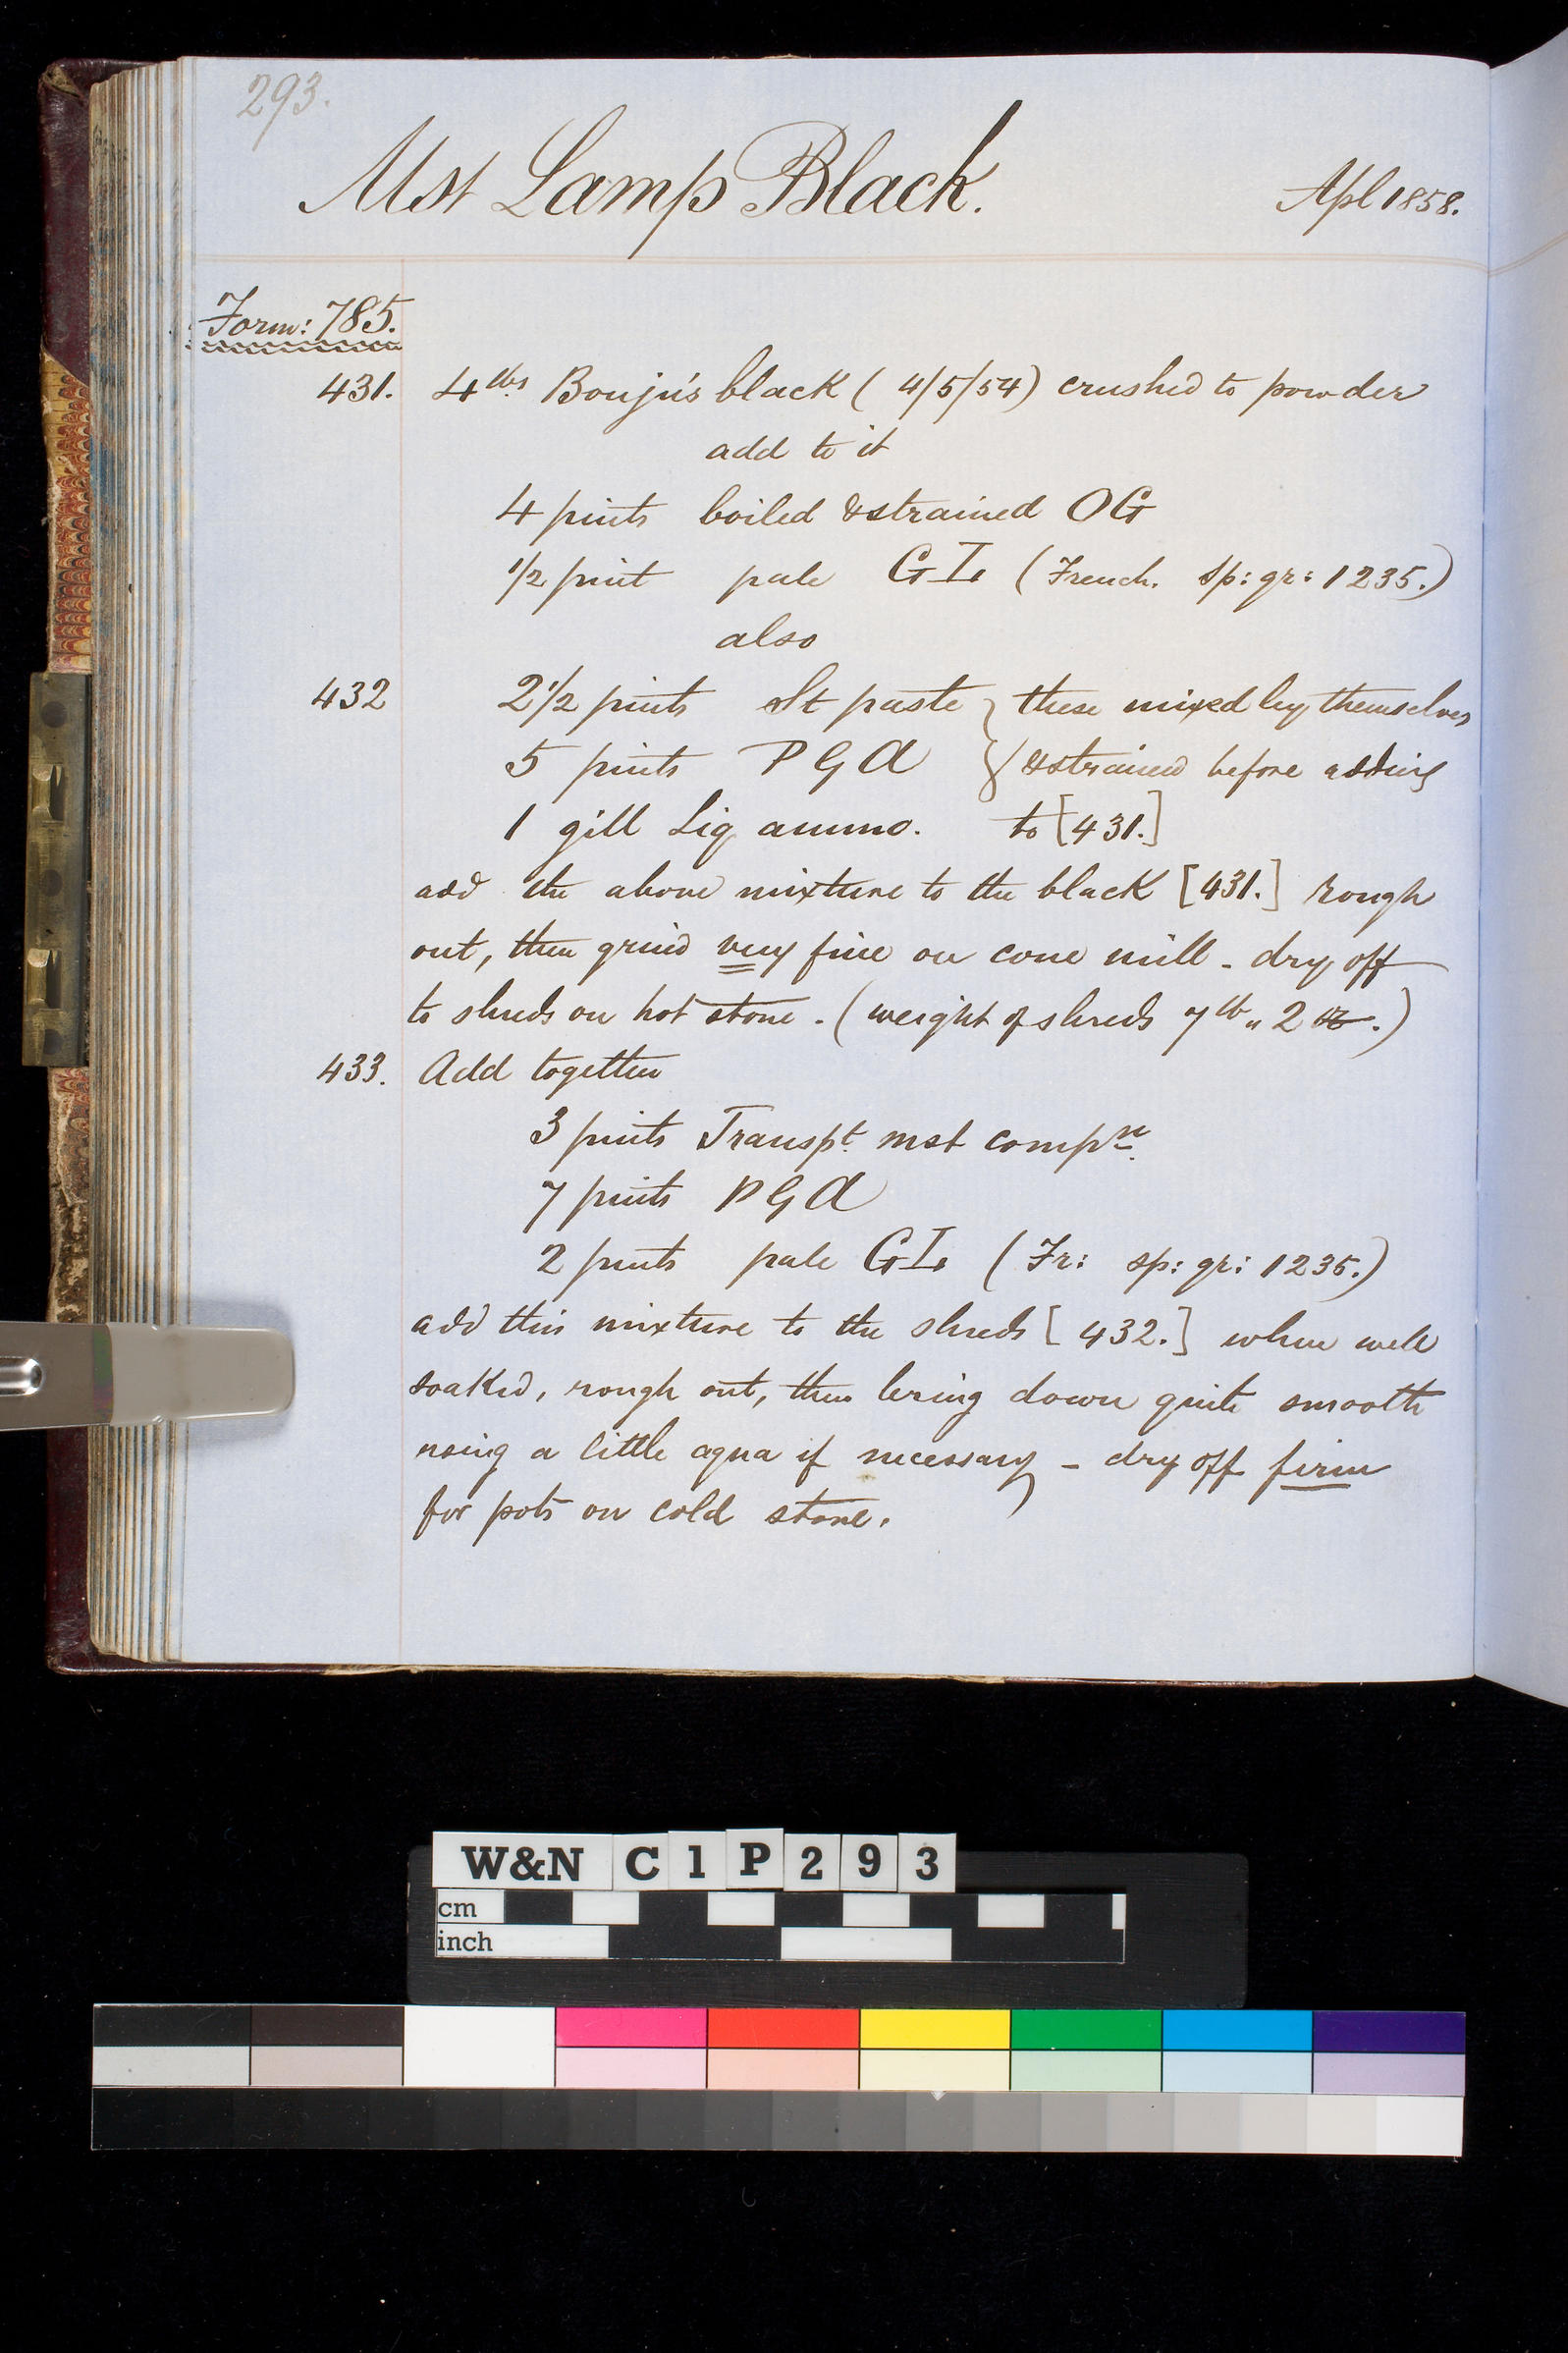 293.
Mst Lamp Black.
Apl 1858.
Form: 785.
431. 4 lbs Bouju's black ( 4/5/54) crushed to powder
add to it
4 pints boiled & strained OG
1/2 pint pale GI. (French. sp: gr: 1235.)
also
432 2 1/2 pints St paste } these mixed by themselves
5 pints P G A } & strained before adding
1 gill Liq ammo. to [431.]
add the above mixture to the black [431.] rough
out, then grind very fine on cone mill - dry off
to shreds on hot stone. (weight of shreds 7 lb " 2 oz.)
433. Add together
3 pints Transpt. mst compn.
7 pints P G A
2 pints pale GI. (Fr: sp: gr: 1235.)
add this mixture to the shreds [432.] when well
soaked, rough out, then bring down quite smooth
using a little aqua if necessary - dry off firm
for pots on cold stone.
W&N C1P293
cm
inch